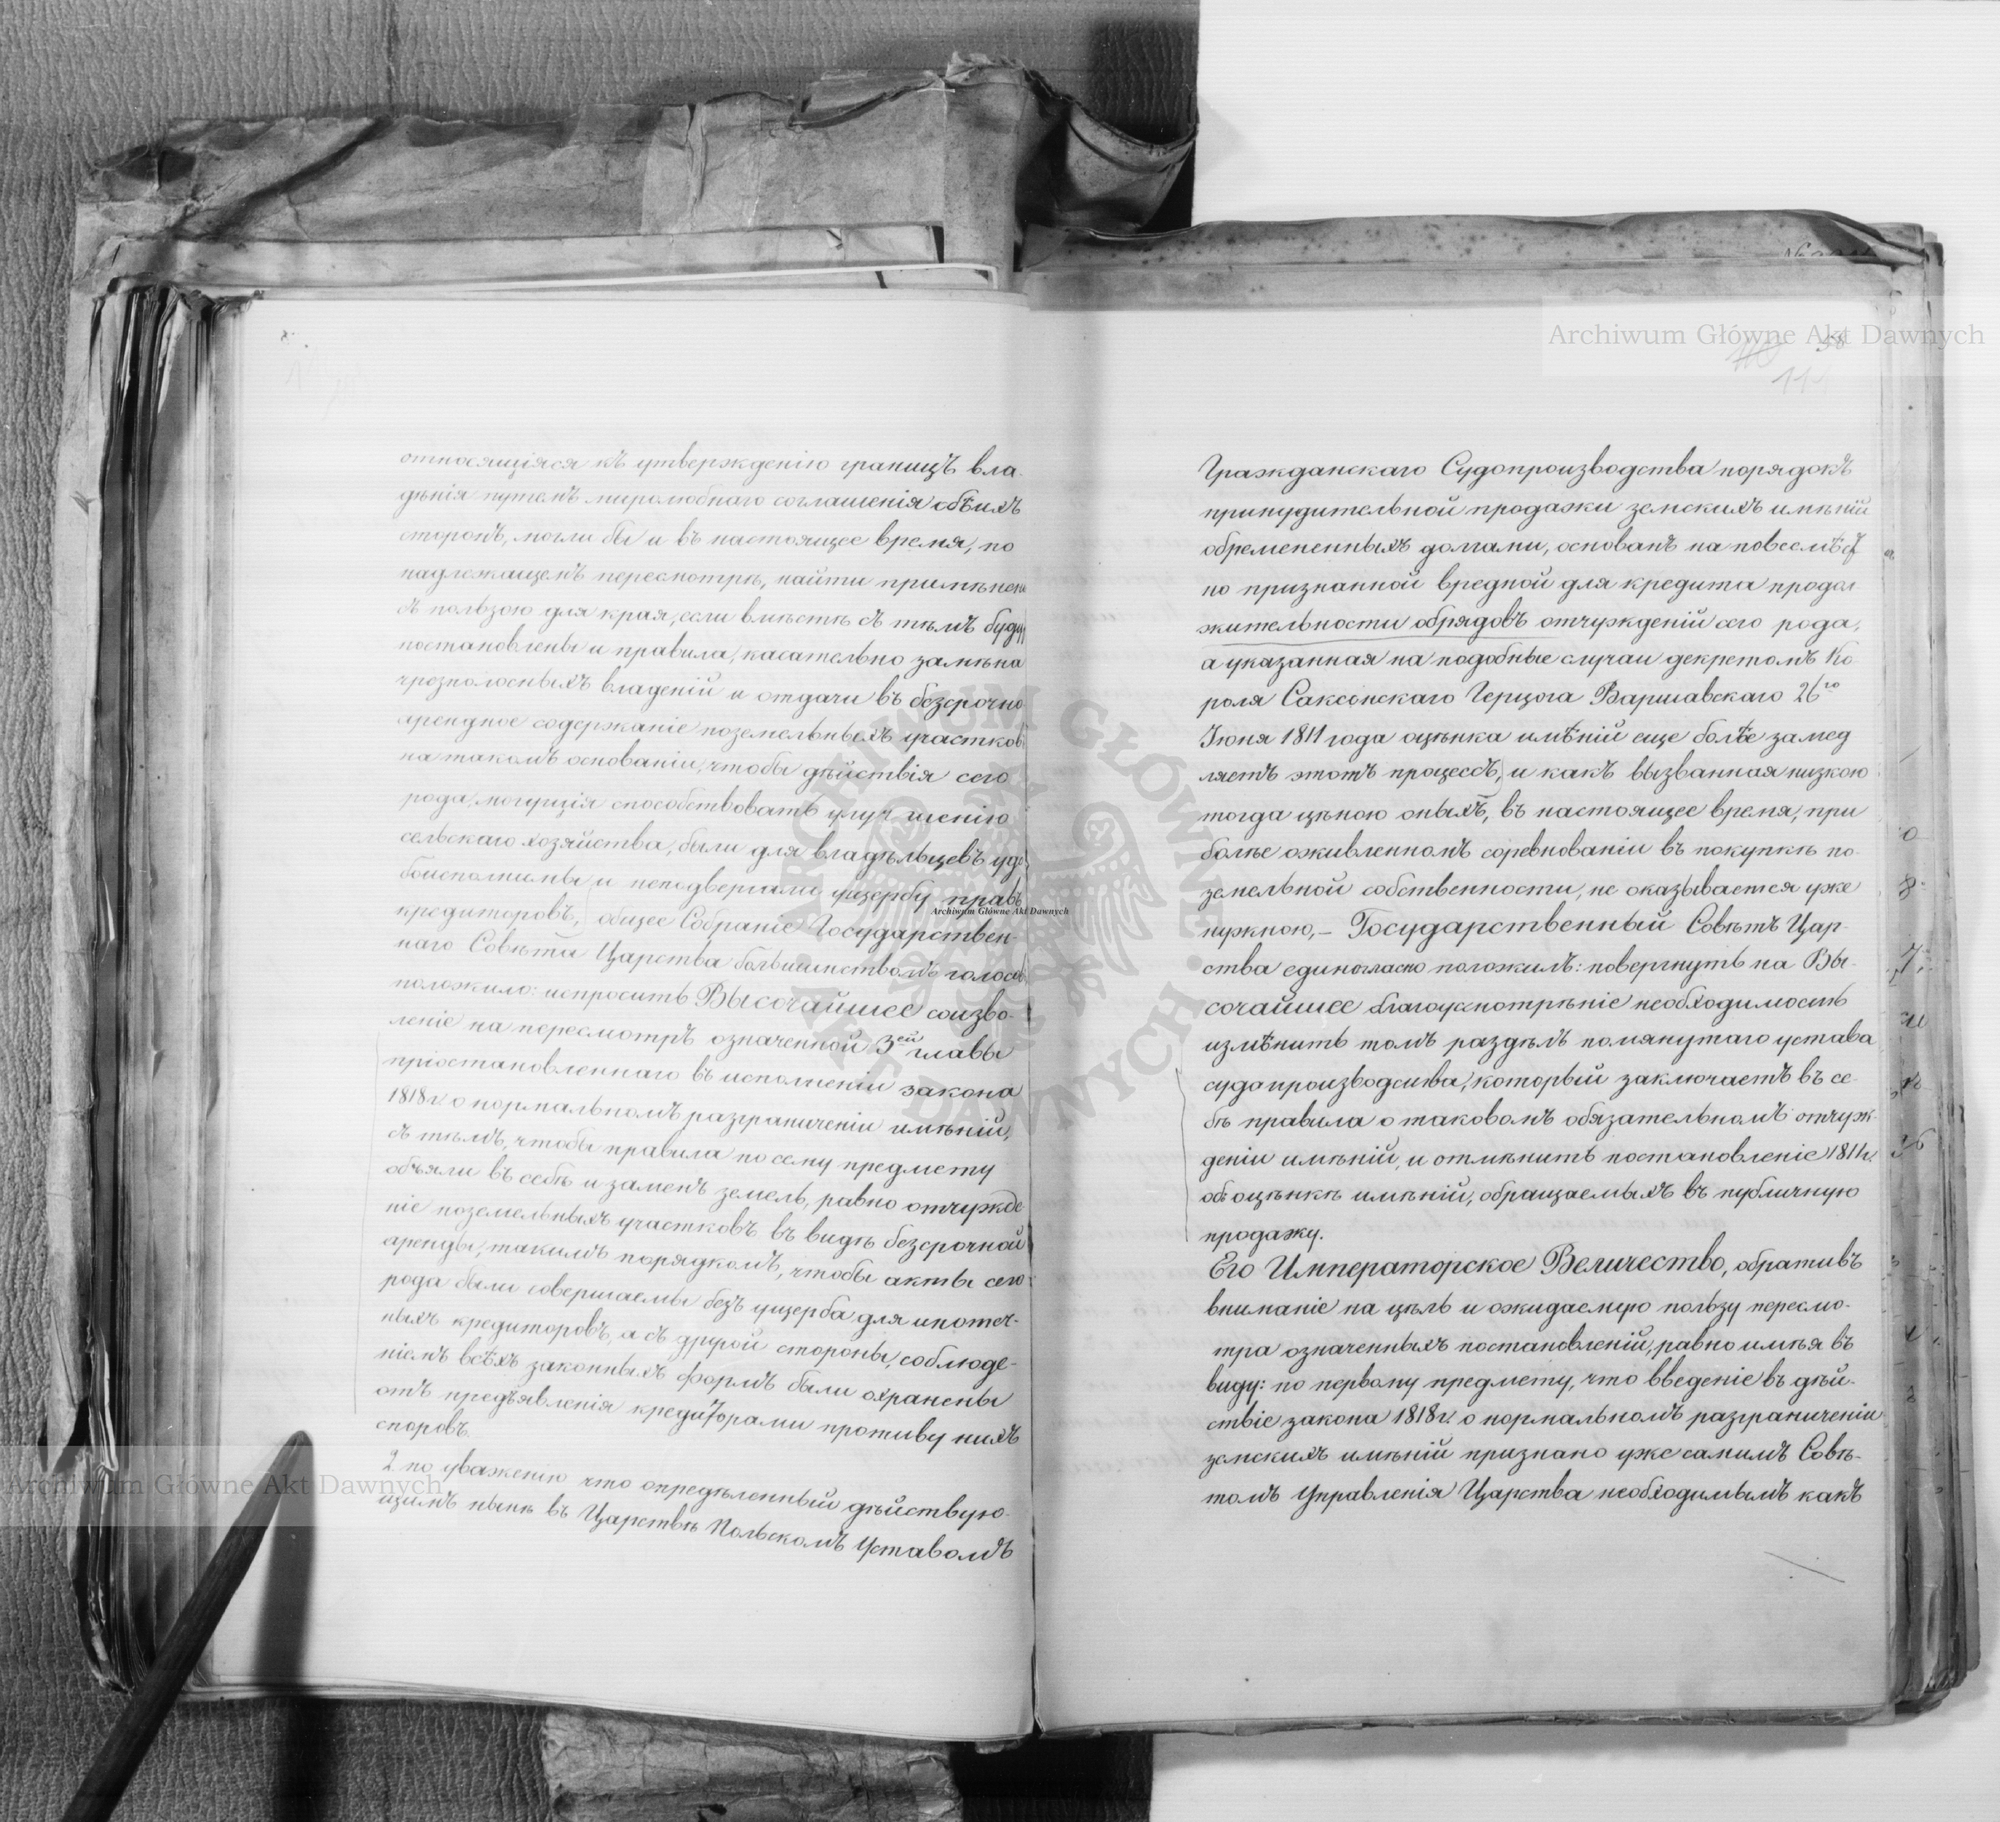 относящіяся къ утвержденію границъ вла-
дѣнія путемъ миролюбнаго соглашенія обѣихъ
сторонъ, могли бы и въ настоящее время, по
надлежащемъ пересмотрѣ, найти примѣнен
съ пользою для края, если вмѣстѣ съ тѣмъ буду
постановлены и правила, касательно замѣна
чрезполосныхъ владеній и отдачи въ безсрочно
арендное содержаніе поземельныхъ участков
на такомъ основаніи, чтобы дѣйствія сего
рода, могущія способствовать улучшенію
сельскаго хозяйства, были для владѣльцевъ удо
боисполнимы и неподвергали ущербу правъ
кредиторовъ, общее Собраніе Государствен-
наго Совѣта Царства большинствомъ голосов
положило: испросить Высочайшее соизво-
леніе на пересмотръ означенной 3ей главы
пріостановленнаго въ исполненіи закона
1818 г. о нормальномъ разграниченіи имѣній,
съ тѣмъ, чтобы правила по сему предмету
объяли въ себѣ и заменъ земель, равно отчужде
ніе поземельныхъ участковъ въ видѣ безсрочной
аренды, такимъ порядкомъ, чтобы акты сего
рода были совершаемы безъ ущерба для ипотеч-
ныхъ кредиторовъ, а съ другой стороны, соблюде-
ніемъ всѣхъ законныхъ формъ были охранены
отъ предъявленія кредиторами противу нихъ
споровъ.
2. по уваженію что опредѣленный дѣйствую-
щимъ нынѣ въ Царствѣ Польскомъ Уставомъ
58
111
Гражданскаго Судопроизводства порядокъ
принудительной продажи земскихъ имѣній
обремененныхъ долгами, основанъ на повсемѣст
но признанной вредной для кредита продол
жительности обрядовъ отчужденій сего рода,
а указанная на подобные случаи декретомъ Ко
роля Саксонскаго Герцога Варшавскаго 26го
Іюня 1811 года оцѣнка имѣній еще болѣе замед
ляетъ этотъ процессъ, и какъ вызванная низкою
тогда цѣною оныхъ, въ настоящее время, при
болѣе оживленномъ соревнованіи въ покупкѣ по-
земельной собственности, не оказывается уже
нужною, – Государственный Совѣтъ Цар-
ства единогласно положилъ: повергнуть на Вы-
сочайшее благоусмотрѣніе необходимость
измѣнить томъ раздѣлъ помянутаго устава
судопроизводства, который заключаетъ въ се-
бѣ правила о таковомъ обязательномъ отчуж-
деніи имѣній, и отмѣнить постановленіе 1811 г.
объ оцѣнкѣ имѣній, обращаемыхъ въ публичную
продажу.
Его Императорское Величество, обративъ
вниманіе на цѣль и ожидаемую пользу пересмо-
тра означенныхъ постановленій, равно имѣя въ
виду: по первому предмету, что введеніе въ дѣй-
ствіе закона 1818 г. о нормальномъ разграниченіи
земскихъ имѣній признано уже самимъ Совѣ-
томъ Управленія Царства необходимымъ какъ
Archiwum Główne Akt Dawnych
Archiwum Główne Akt Dawnych
Archiwum Główne Akt Dawnych
ARCHIWUM GŁÓWNE AKT DAWNYCH